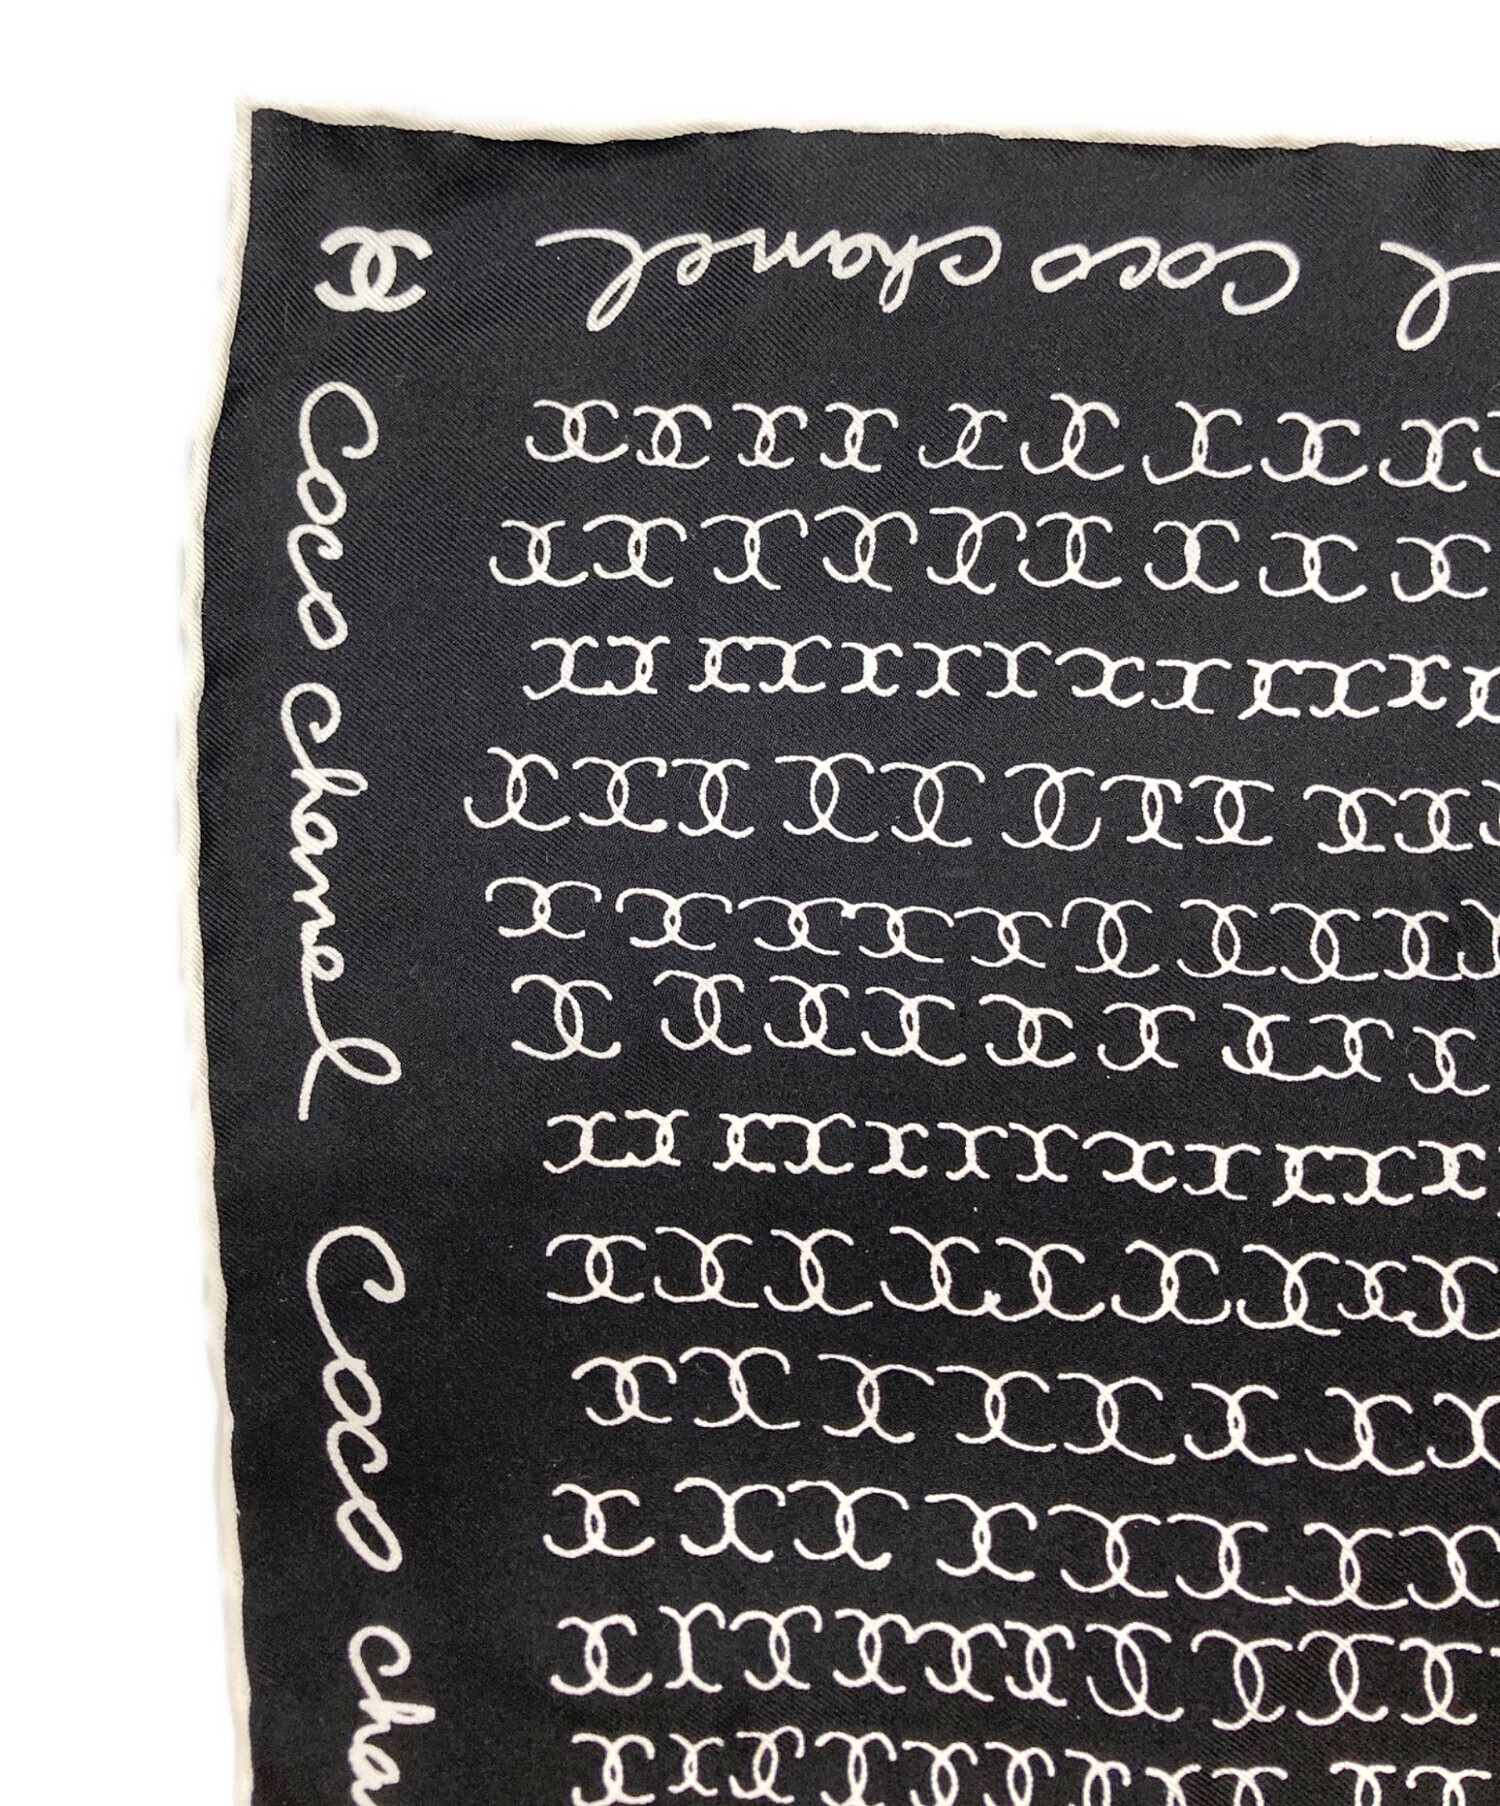 coco chanel
l
Coco chanel
Coco cha